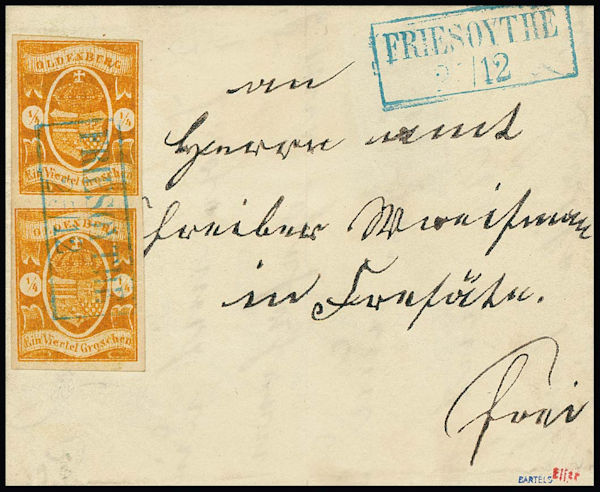 OLDENBURG
1/4 1/4
Ein Viertel Groschen
OLDENBURG
1/4 1/4
Ein Viertel Groschen
FRIESOYTHE
/12
an
Herrn Amt
schreiber
in Fresoite.
frei
BARTELS